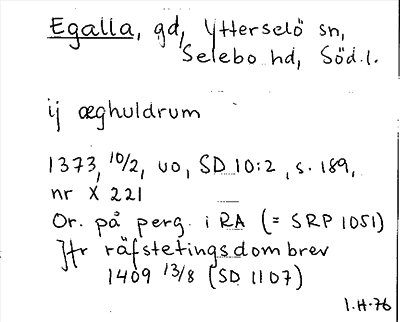 Egalla, gd, Ytterselö sn,
Selebo hd, Söd.l.
ij æghuldrum
1373, 10/2, uo, SD 10:2, s. 189,
nr X 221
Or. på perg. i RA (= SRP 1051)
Jfr räfstetingsdombrev
1409 13/8 (SD 1107)
I.H-76